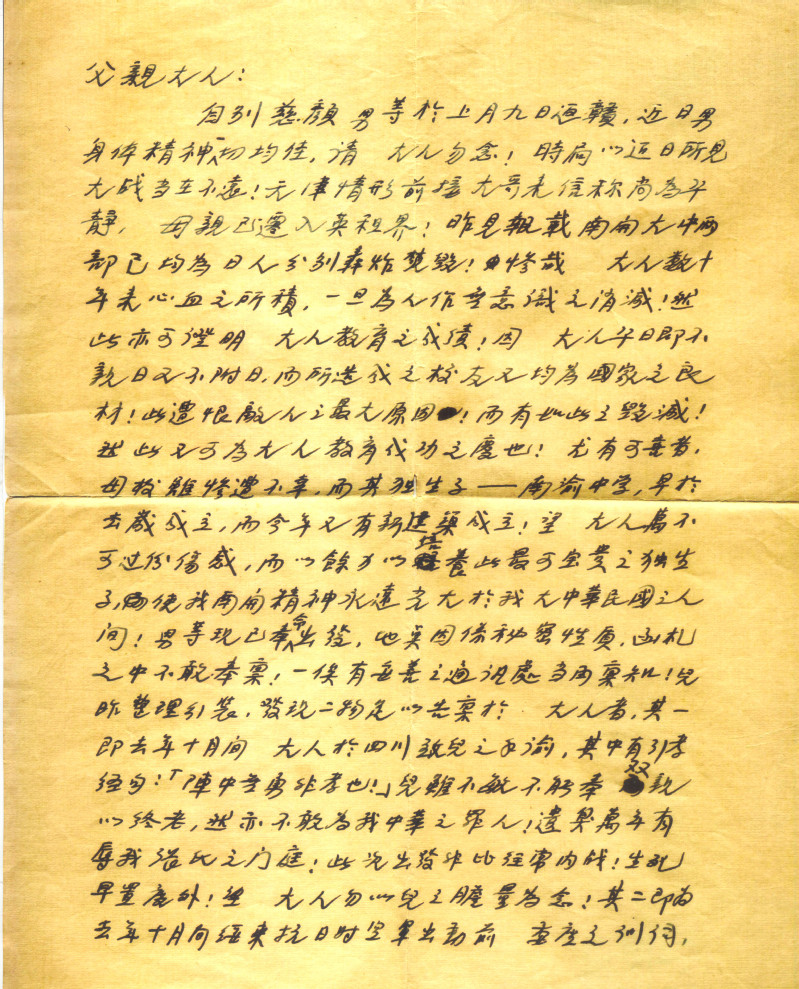 父親大人：
自別慈顏男等於上月九日返贛，近日男
身体精神一切均佳，請 大人勿念！時局以近日所見
大战当在不遠！天津情形前接大哥来信称尚為平
静， 母親已遷入英租界！昨見報載南開大中兩
部已均為日人分別轟炸焚毀！惨哉 大人数十
年来心血之所積，一旦為人作無意識之消滅！然
此亦可證明 大人教育之成績！因 大人平日即不
親日又不附日，而所造成之校友又均為國家之良
材！此遭恨敵人之最大原因！而有如此之毀滅！
然此又可為大人教育成功之慶也！尤有可喜者，
母校雖惨遭不幸，而其独生子——南渝中学，早於
去歲成立，而今年又有新建築成立！望 大人萬不
可过份傷感，而以餘力以培養此最可宝贵之独生
子，而使我南開精神永遠光大於我大中華民國之人
间！男等現已奉命出發，地 因係秘密性质，函札
之中不敢奉稟！一俟有妥善之通訊處当再稟知！兒
昨整理行装，發現二物足以告稟於 大人者，其一
即去年十月间 大人於四川致兒之手諭，其中有引孝
经句：「陣中無勇非孝也！」兒雖不敏不能奉双親
以终老，然亦不敢為我中華之罪人！遺臭萬年有
辱我張氏之门庭！此次出發非比经常内战！生死
早置度外！望 大人勿以兒之膽量為念！其二即為
去年十月间綏東抗日时空軍出動前 委座之训詞，